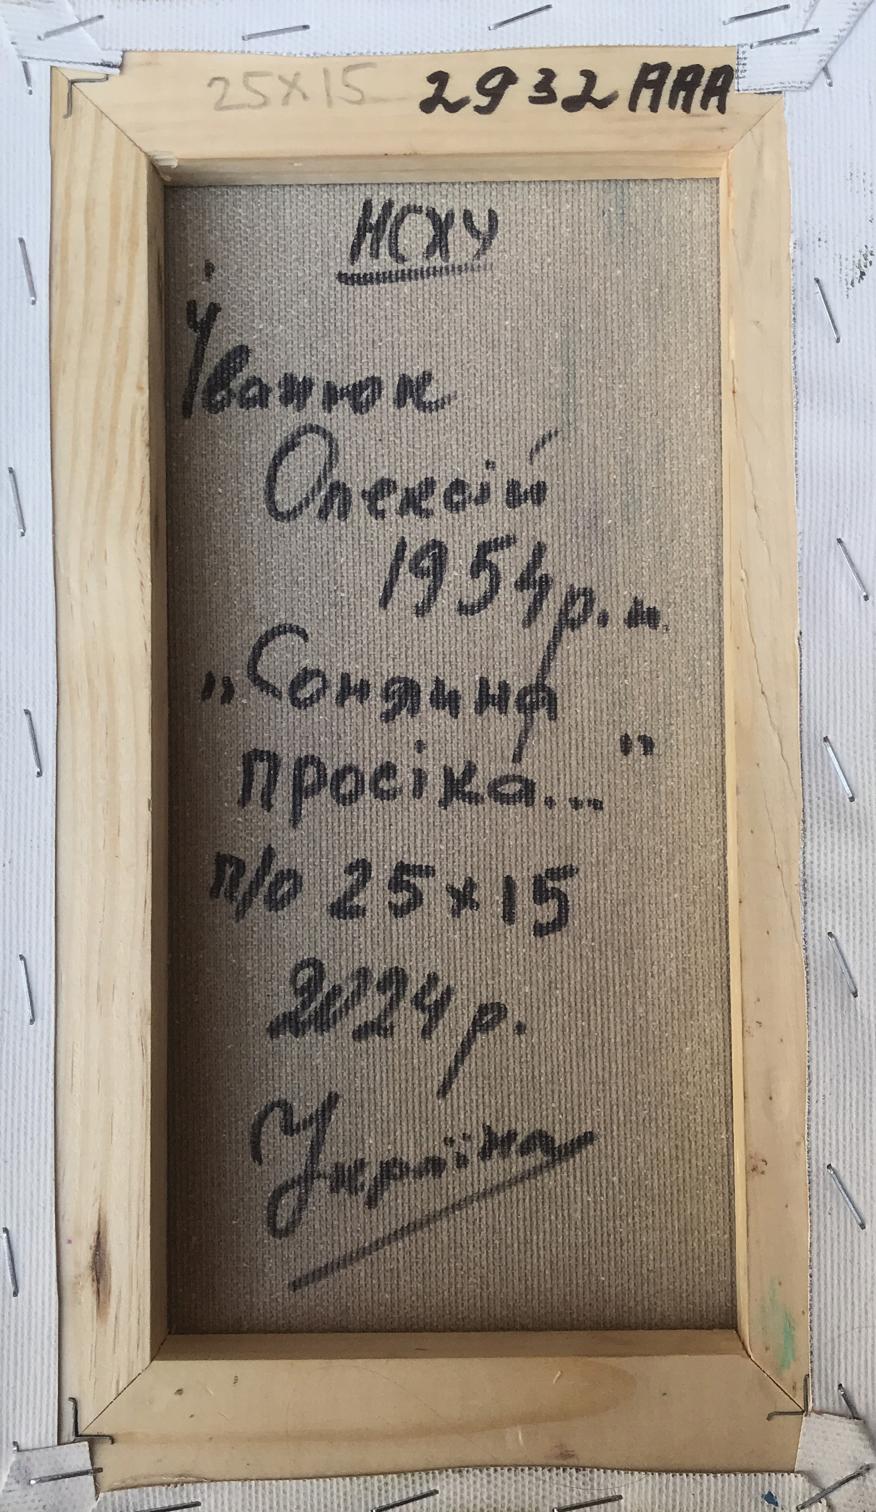 25x15 2932 AAA
НСХУ
Іванюк
Олексій
1954 р.н.
„Сонячна
просіка..."
п/о 25x15
2024 р.
Україна